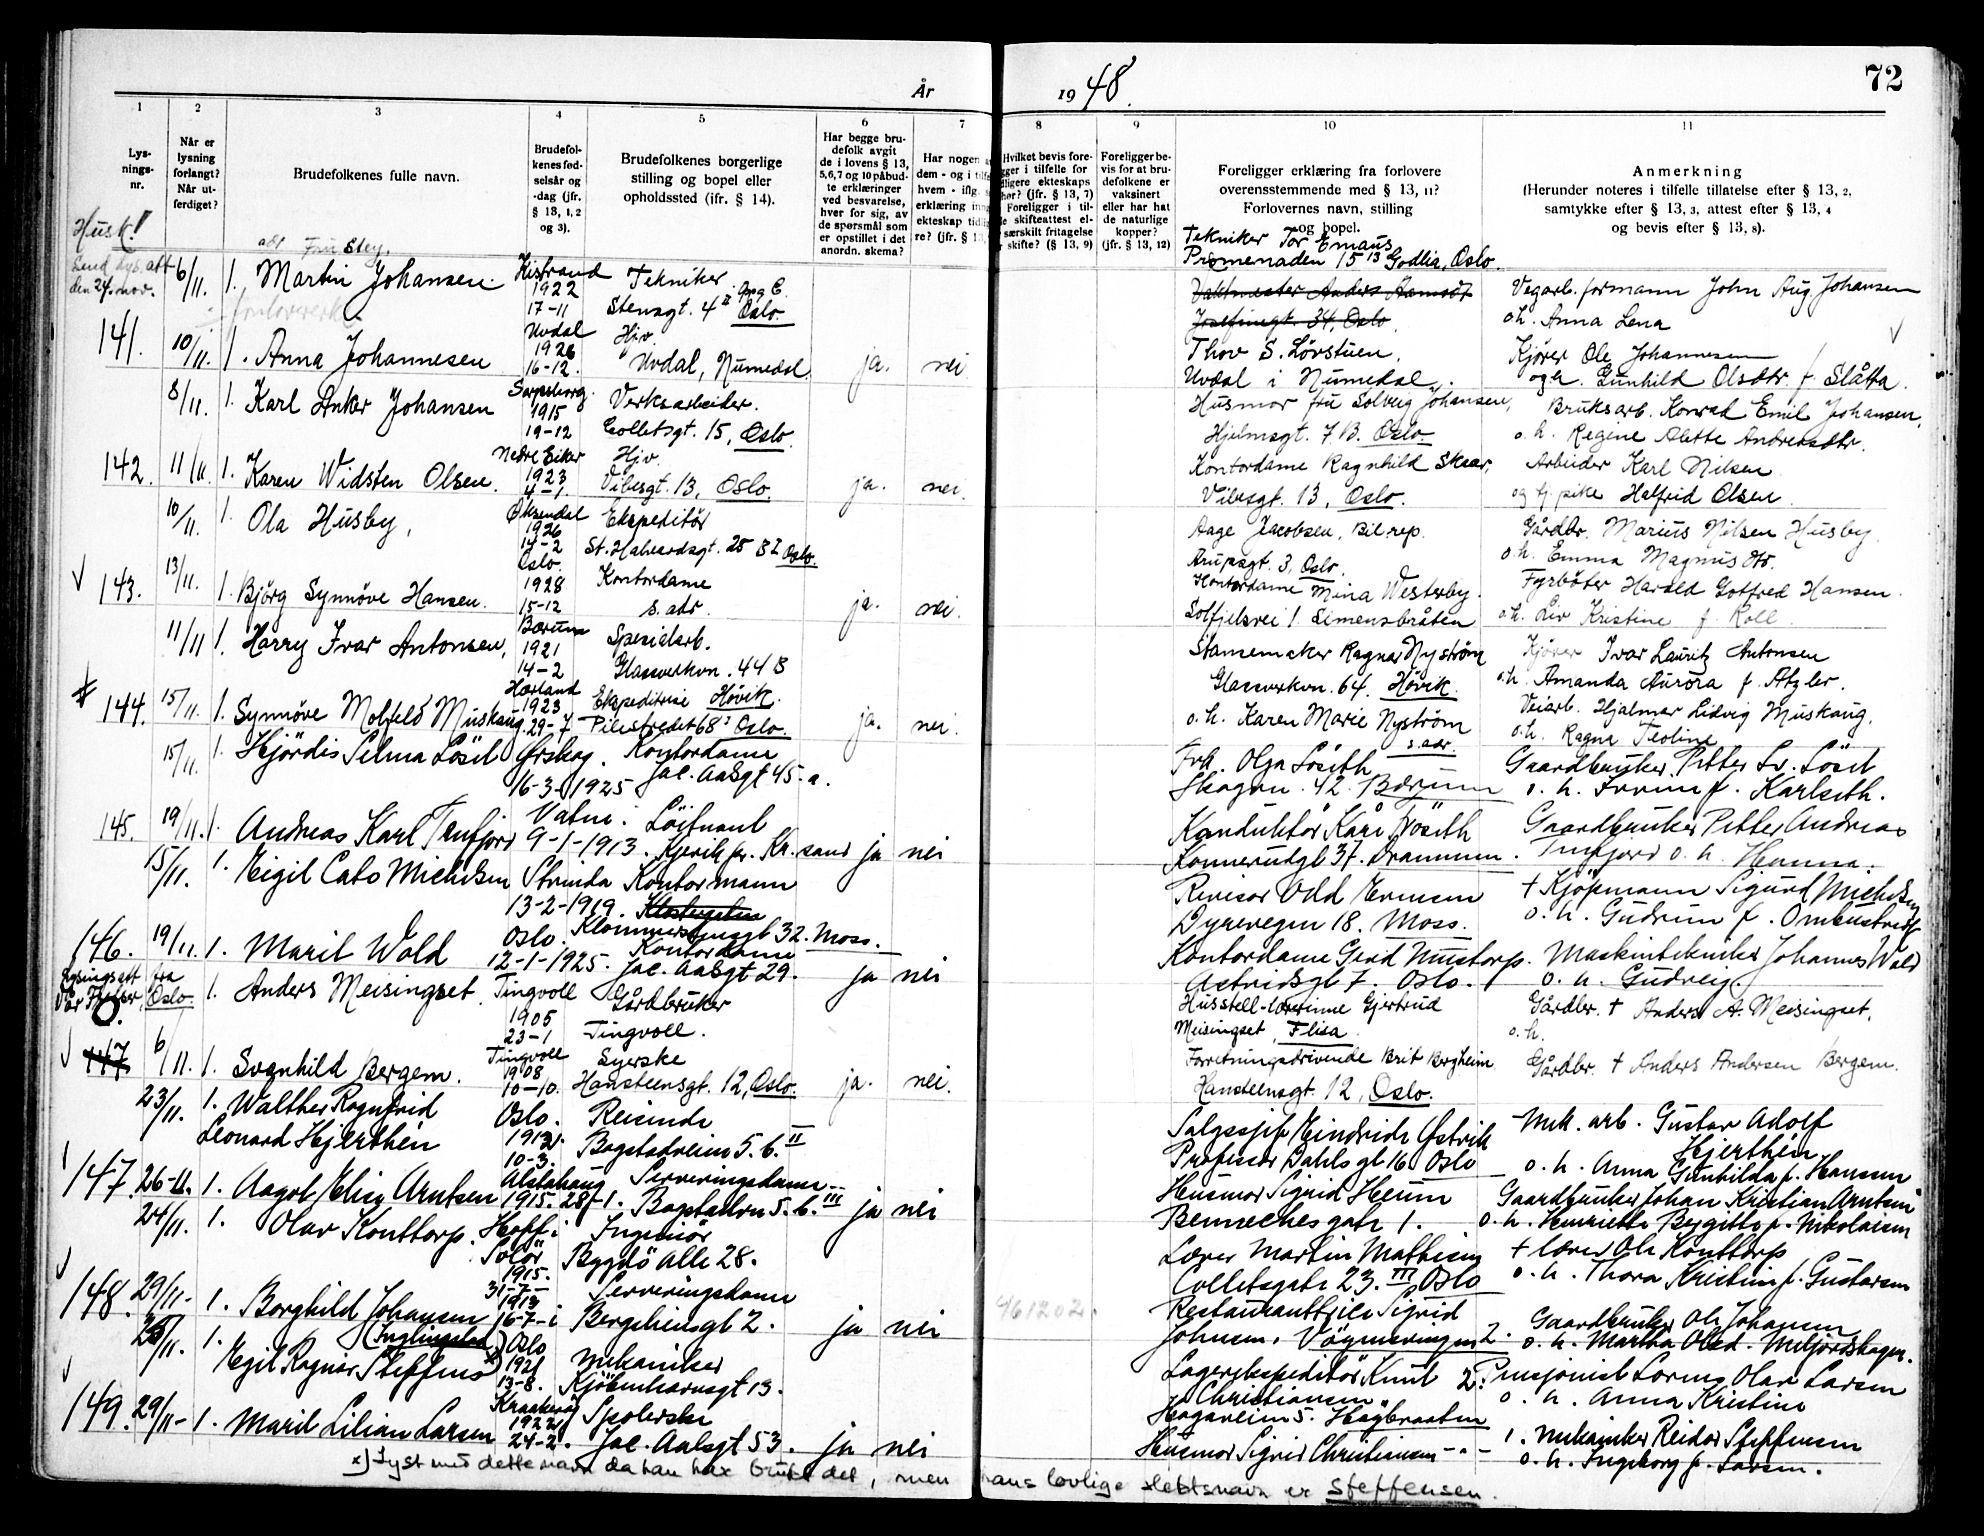 År 1948.
72
1 2 3 4 5 6 7 8 9 10 11
Lys-
nings-
nr.
Når er
lysning
forlangt?
Når ut-
ferdiget?
Brudefolkenes fulle navn.
Brudefol-
kenes fød-
selsår og
-dag (jfr.
§ 13, 1, 2
og 3).
Brudefolkenes borgerlige
stilling og bopel eller
opholdssted (ifr. § 14).
Har begge bru-
defolk avgit
de i lovens § 13,
5,6,7 og 10 påbud-
te erklæringer
ved besvarelse,
hver for sig, av
de spørsmål som
er opstillet i det
anordn. skema?
Har nogen a
dem - og i tilfe
hvem - iflg. s
erklæring inng
ekteskap tidlig
re? (jfr. § 13,
Hvilket bevis fore-
gger i tilfelle for
dligere ekteskaps
hør? (jfr. § 13, 7)
Foreligger i til-
e skifteattest el-
særskilt fritagelse
skifte? (§ 13, 9)
Foreligger be-
vis for at bru-
defolkene er
vaksinert
eller har hat
de naturlige
kopper?
(jfr. § 13, 12)
Foreligger erklæring fra forlovere
overensstemmende med § 13, 11?
Forlovernes navn, stilling
og bopel.
Anmerkning
(Herunder noteres i tilfelle tillatelse efter § 13, 2,
samtykke efter § 13, 3, attest efter § 13, 4
og bevis efter § 13, 8).
Husk!
Send lys. att
den 24. nov.
Tekniker Tor Emaus
Promenaden 15 13 Godlia, Oslo.
6/11. 1. Martin Johansen. Kistrand 1922 17-11 Tekniker Stensgt. 4 II Opg E. Oslo
Vaktmester Anders Aamodt
Josefinegt. 34, Oslo.
Vegarb. formann John Aug. Johansen
o.h. Anna Lena
141. 10/11. 1. Anna Johannesen Uvdal 1926 16-12. Hjv. Uvdal, Numedal. ja. nei
Thov S. Lövstuen,
Uvdal i Numedal.
Kjører Ole Johannesen
og h. Gunhild Olsdtr. f. Slåtta.
8/11. 1. Karl Anker Johansen Sarpsborg. 1915 19-12 Verksarbeider. Colletsgt. 15, Oslo.
Husmor fru Solveig Johansen,
Hjelmsgt. 7 B. Oslo
Bruksarb. Konrad Emil Johansen,
o. h. Regine Alette Andreasdtr.
142. 11/11. 1. Karen Widsten Olsen. Nedre Eiker 1923 4-1. Hjv. Vibesgt. 13, Oslo. ja. nei.
Kontordame Ragnhild Skaar,
Vibesgt. 13, Oslo.
Arbeider Karl Nilsen
og tj. pike Halfrid Olsen.
10/11. 1. Ola Husby, Øksendal 1926 14-2 Ekspeditör St. Halvardsgt. 25 B I Oslo.
Aage Jacobsen, Bil rep.
Arupsgt. 3, Oslo.
Gårdbr. Marius Nilsen Husby.
o.h. Emma Magnusdtr.
143. 13/11. 1. Björg Synnöve Hansen. Oslo. 1928 15-12 Kontordame s. adr. ja. nei.
Kontordame Mina Westerby.
Solfjelsvei 1 Simensbråten
Fyrböter Harald Gotfred Hansen.
o.h. Liv Kristine f. Roll.
11/11 1. Harry Ivar Antonsen, Bærum 1921 14-2 Spesialarb. Glassverkvn. 44 B Høvik.
Stansemaker Ragnar Nyström
Glassverkvn. 64. Høvik.
Kjører Ivar Lauritz Antonsen
o.h. Amanda Aurora f. Atzler.
144. 15/11. 1. Synnöve Molfeld Muskaug. Hærland 1923 29-7 Ekspeditrise Pilestredet 68 Oslo. ja. nei.
o. h. Karen Marie Nyström
s. adr.
Veiarb. Hjalmar Lidvig Muskaug,
o.h. Ragna Teoline
15/11. 1. Hjördis Selma Löset Ørskog. 16-3-1925 Kontordame Jac. Aalsgt 45. a.
Frk. Olga Löseth
Skogvn. 42. Bærum
Gaardbruker Petter Sv. Löset
o. h. f. Karlseth.
145. 19/11. 1. Andreas Karl Tenfjord Vatne. 9-1-1913. Löitnant Kjevik pr. Kr.sand ja nei
Konduktör Kåre Löseth
Konnerudgt 37. Drammen.
Gaardbruker Petter Andreas
Tenfjord o. h. Hanna.
15/11. 1. Eigil Cato Michelsen Strinda 13-2-1919. Kontormann Klostergaten
Revisor Odd Evensen
Dyrevegen 18. Moss.
+ Kjöpmann Sigurd Michelsen
o. h. Gudrun f. Ombustvedt
146. 19/11. 1. Marit Wold Oslo. 12-1-1925. 32. Moss. Kontordame Jac. Aalsgt 29. ja nei
Kontordame Gerd Mustorp.
Astridsgt 7. Oslo.
Maskintekniker Johannes Wold
o. h. Gudveig.
Lysingsatt
Vår Frelser
fra
Oslo.
1. Anders Meisingset. Tingvoll 1905 23-1 Gårdbruker Tingvoll.
Husstell-lærerinne Gjertrud
Meisingset, Flisa.
Gårdbr. + Anders A. Meisingset.
o.h.
147 6/11. 1. Svanhild Bergem. Tingvoll 1908 10-10. Syerske Hansteensgt. 12, Oslo. ja. nei.
Forretningsdrivende Brit Bergheim
Hansteensgt. 12, Oslo.
Gårdbr. + Anders Andersen Bergem.
23/11. 1. Walther Ragnfrid
Leonard Hjerthén Oslo. 10-3. Reisende Bogstadveien 5. b. II
Salgssjef Eindride Østvik
Professor Dahls gt 16. Oslo
Mek. arb. Gustav Adolf
Hjerthén
o. h. Anna Gunhilda f. Hansen
147. 26-11. 1. Aagot Elise Arntsen Alstahaug 1915. 28-1. Serveringsdame Bogstadvn 5. b. III ja nei
Husmor Sigrid Heum
Bennechesgate 1.
Gaardbruker Johan Kristian Arntsen
o. h. Henriette Bergitte f. Nikolaisen
24/11. 1. Olav Konttorp. Hoff i Solör 1915. 31-7- Ingeniör Bygdö Alle 28.
Lærer Martin Mathisen
Colletsgate 23. III Oslo
+ lærer Ole Konttorp
o. h. Thora Kristine f. Gustavsen
148. 29/11- 1. Borghild Johansen 1913 16-7- Serveringsdame Bergsliensgt 2. ja nei
461202.
Restaurantfrue Sigrid
Johnsen. 2.
Gaardbruker Ole Johansen
o. h. Martha
1. Egil Ragnar Steffens x) Oslo 1921 13-8. Mekaniker Kjöbenhavnsgt 13.
Lagerekspeditör Knut
Christiansen
Hagaveien 5. Høybraaten
2. Pensjonist Lorens Olav Larsen
o. h. Anna Kristine
149. 29/11- 1. Marit Lilian Larsen Kraakerøy 1922 24-2. Spolerske Jac. Aalsgt 53. ja nei
Husmor Sigrid Christiansen - " -
1. Mekaniker Reidar Steffensen
o. h. Ingeborg f. Larsen.
x) Lyst med dette navn da han har brukt det, men hans lovlige slektsnavn er Steffensen.